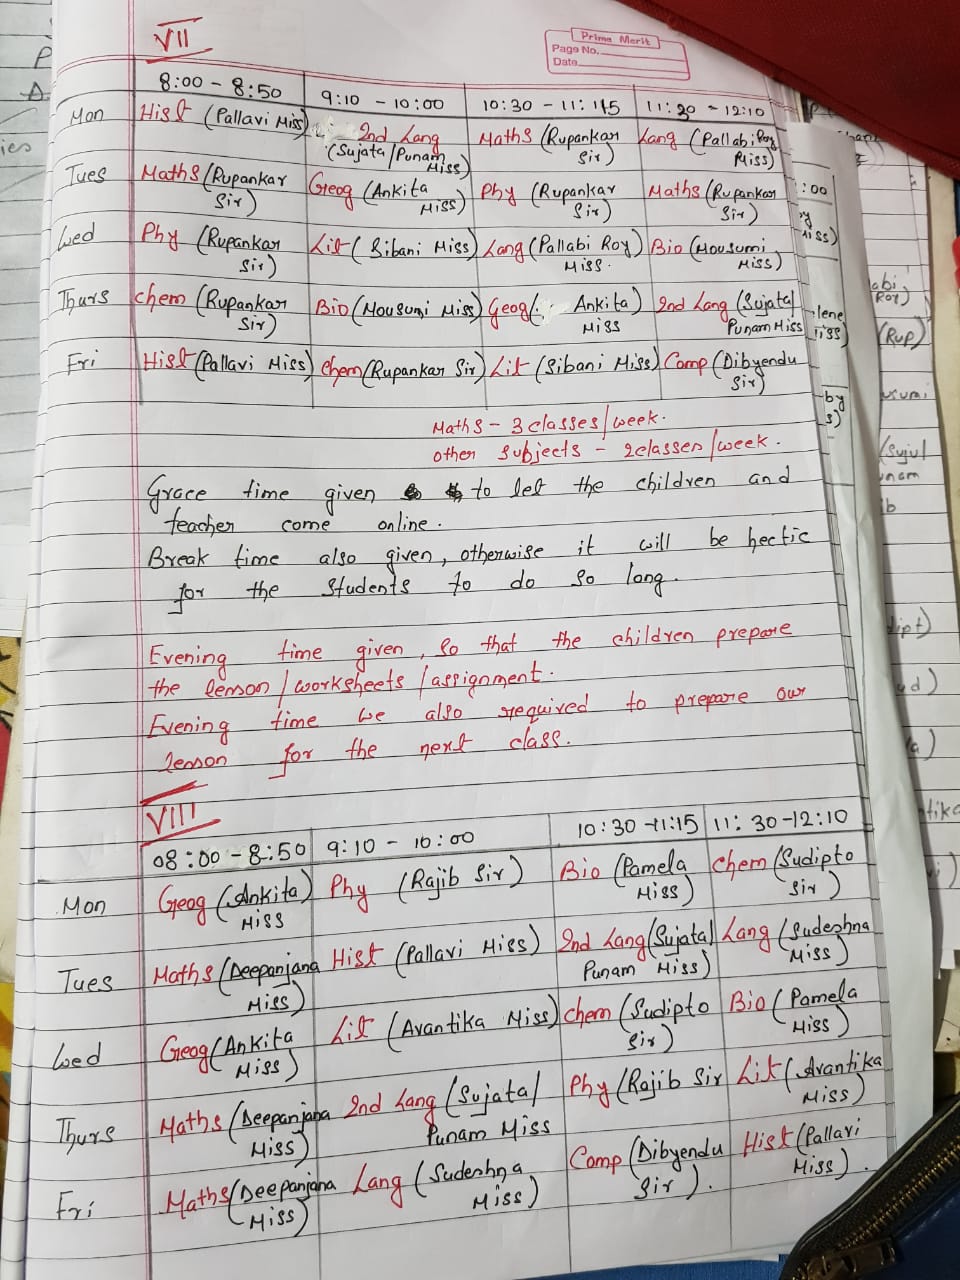 VII
Prime Merit
Page No.
Date
8:00 - 8:50 9:10 - 10:00 10:30 - 11:15 11:30 - 12:10
Mon Hist (Pallavi Miss) 2nd Lang (Sujata/Punam Miss) Maths (Rupankar Sir) Lang (Pallabi Roy Miss)
Tues Maths (Rupankar Sir) Geog (Ankita Miss) Phy (Rupankar Sir) Maths (Rupankar Sir)
Wed Phy (Rupankar Sir) Lit (Sibani Miss) Lang (Pallabi Roy Miss. Bio (Mousumi Miss)
Thurs Chem (Rupankar Sir) Bio (Mousumi Miss) Geog (Ankita) Miss 2nd Lang (Sujata/ Punam Miss
Fri Hist (Pallavi Miss) Chem (Rupankar Sir) Lit (Sibani Miss) Comp (Dibyendu Sir)
Maths - 3 classes/week.
other subjects - 2classes/week.
Grace time given to let the children and
teacher come online.
Break time also given, otherwise it will be hectic
for the students to do so long.
Evening time given, so that the children prepare
the lesson/worksheets/assignment.
Evening time we also required to prepare our
lesson for the next class.
VIII
08:00 - 8:50 9:10 - 10:00 10:30 - 11:15 11:30 - 12:10
Mon Geog (Ankita) Miss Phy (Rajib Sir) Bio (Pamela Miss) Chem (Sudipto Sir)
Tues Maths (Deepanjana Miss) Hist (Pallavi Miss) 2nd Lang (Sujata/ Punam Miss) Lang (Sudeshna Miss)
Wed Geog (Ankita Miss) Lit (Avantika Miss) Chem (Sudipto Sir) Bio (Pamela Miss)
Thurs Maths (Deepanjana Miss) 2nd Lang (Sujata/ Punam Miss Phy (Rajib Sir Lit (Avantika Miss)
Fri Maths (Deepanjana Miss) Lang (Sudeshna Miss) Comp (Dibyendu Sir). Hist (Pallavi Miss).